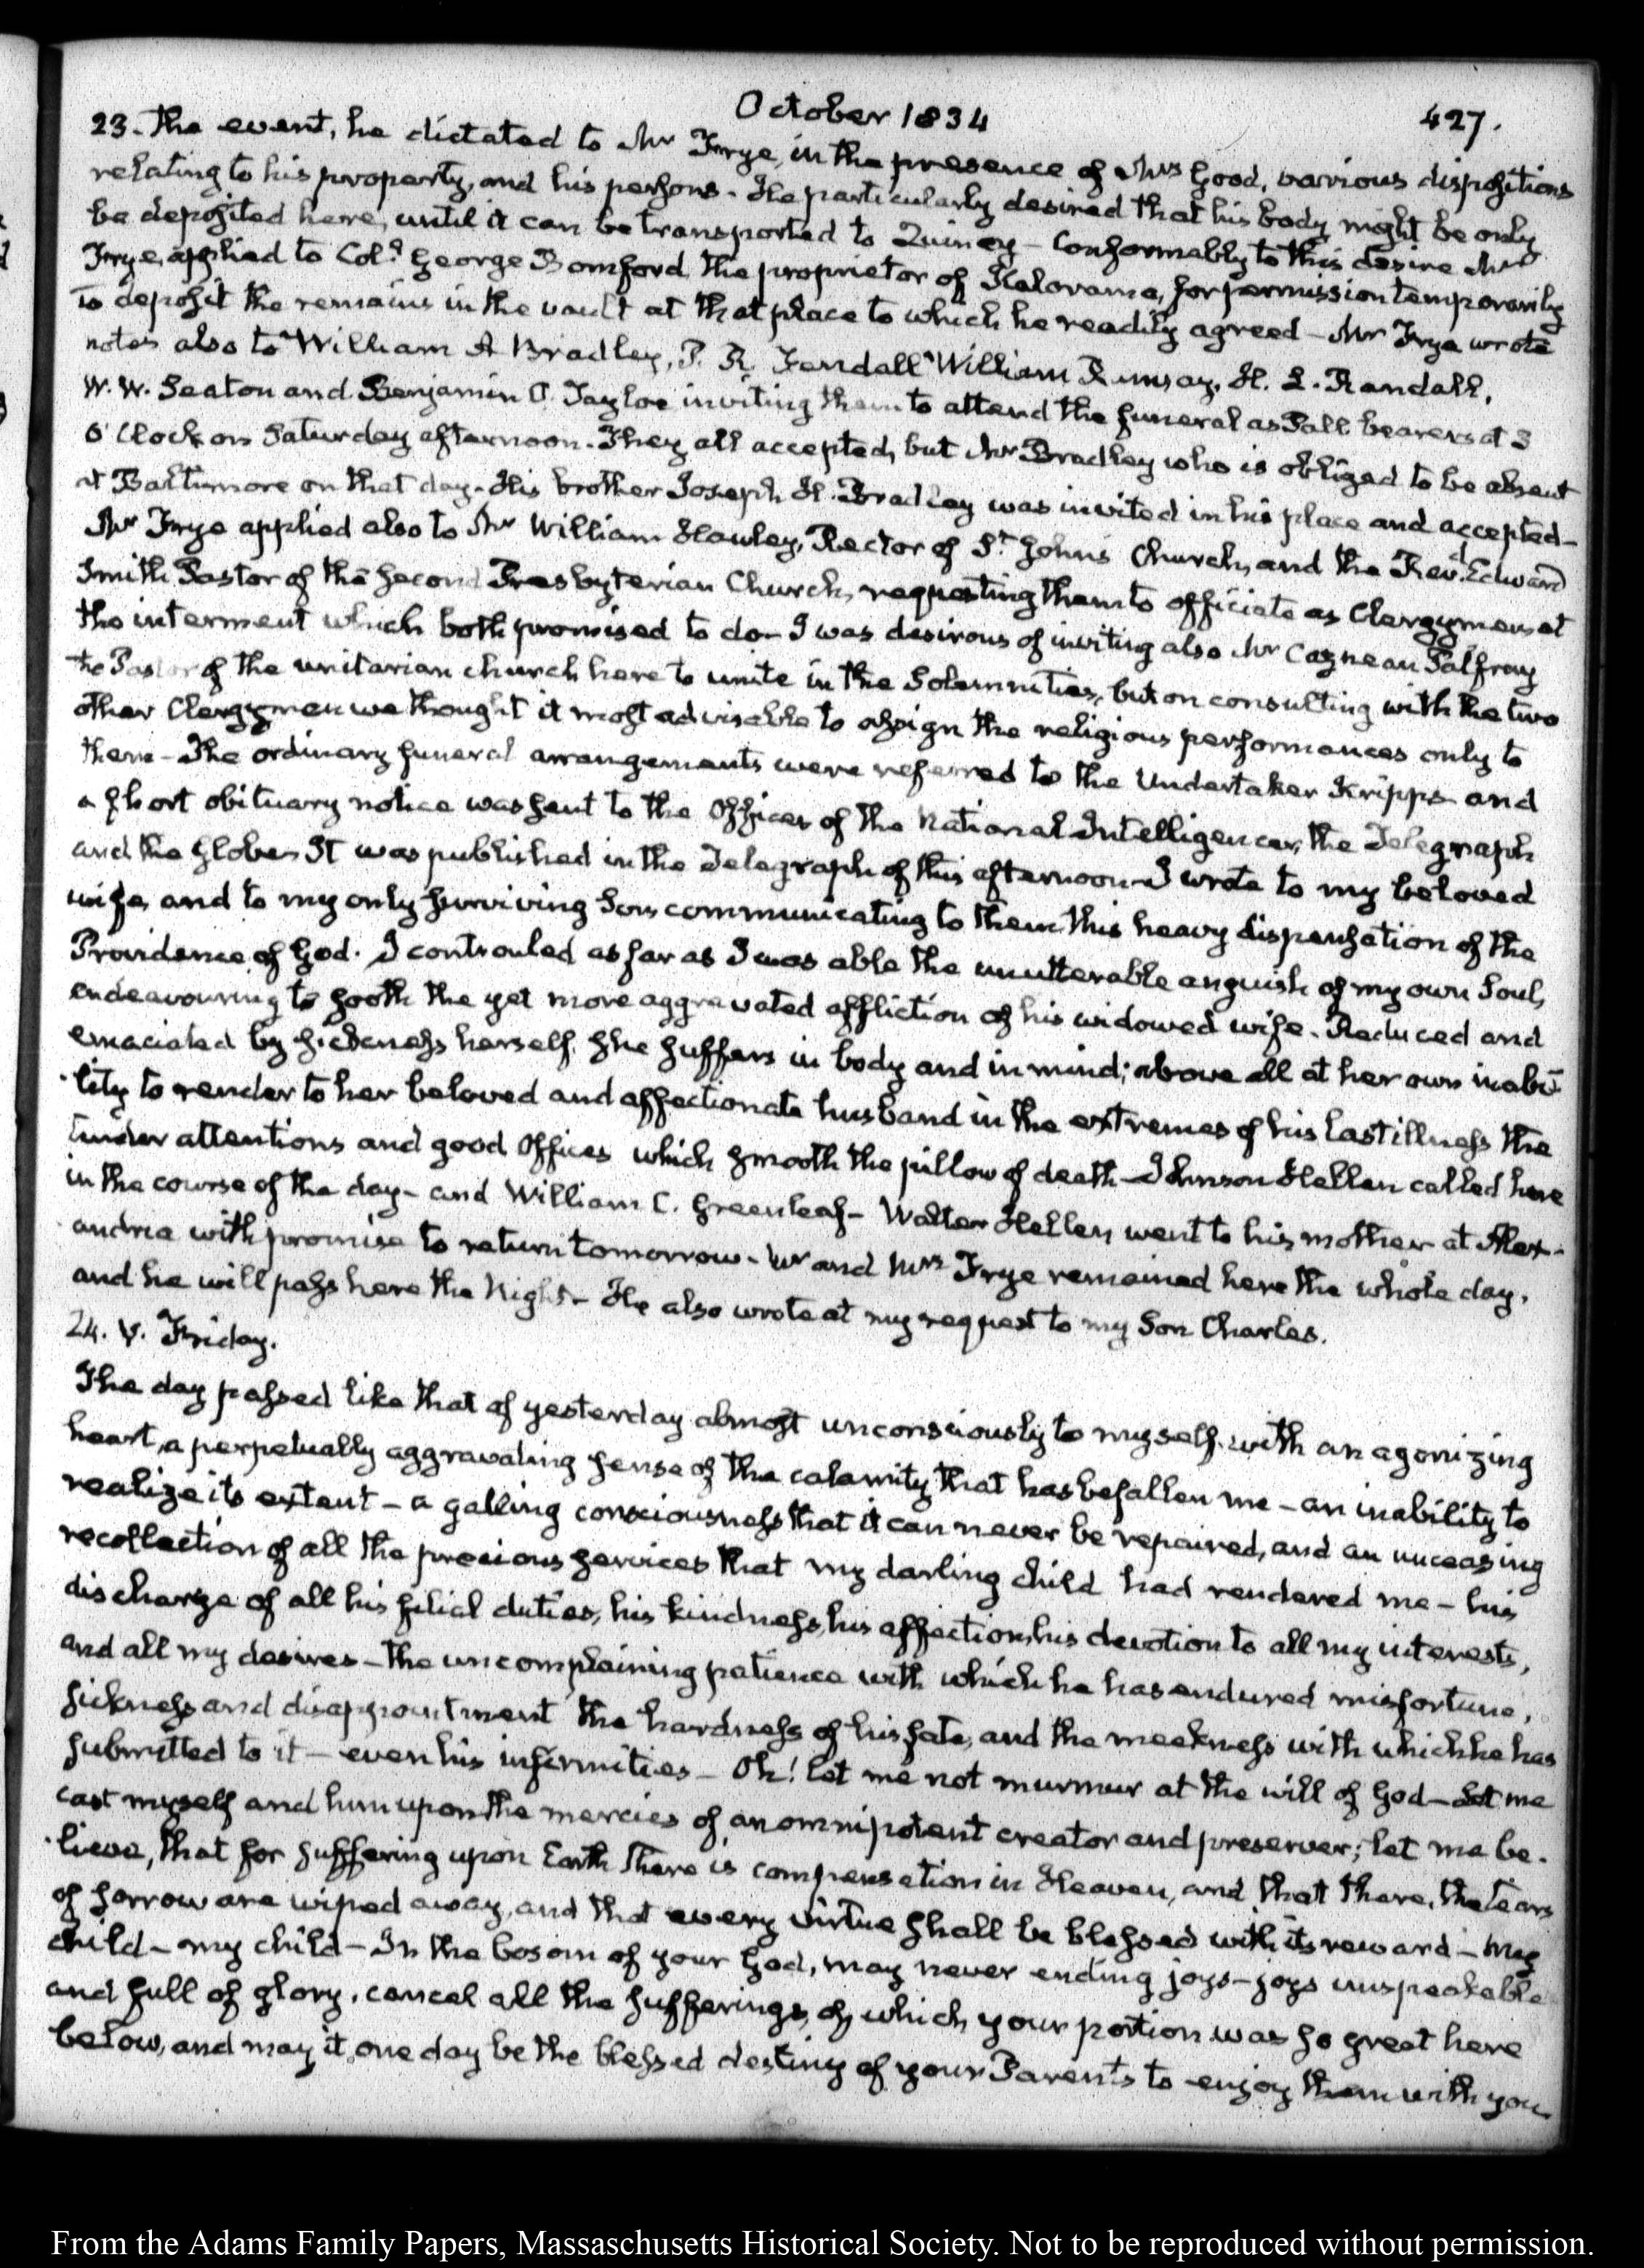 October 1834
427.
23. the event, he dictated to Mr Frye, in the presence of Mrs Good, various dispositions
relating to his property, and his persons. He particularly desired that his body might be only
be deposited here, until it can be transported to Quincy – Conformably to this desire Mr
Frye, applied to Col.l George Bomford the proprietor of Kalorama, for permission temporarily
to deposit the remains in the vault at that place to which he readily agreed – Mr Frye wrote
notes also to William A Bradley, P. R. Fendall William Ramsay, H. L. Randall,
W. W. Seaton and Benjamin O. Tayloe inviting them to attend the funeral as Pall bearers at 3
O'Clock on Saturday afternoon. They all accepted, but Mr Bradley who is obliged to be absent
at Baltimore on that day. His brother Joseph H. Bradley was invited in his place and accepted –
Mr Frye applied also to Mr William Hawley, Rector of St Johns Church, and the Revd. Edward
Smith Pastor of the Second Presbyterian Church, requesting them to officiate as Clergymen at
the interment which both promised to do – I was desirous of inviting also Mr Cazneau Palfrey
the Pastor of the unitarian church here to unite in the Solemnities, but on consulting with the two
other Clergymen we thought it most advisable to assign the religious performances only to
them – The ordinary funeral arrangements were referred to the Undertaker Kripps and
a short obituary notice was sent to the Offices of the National Intelligencer, the Telegraph
and the Globe – It was published in the Telegraph of this afternoon – I wrote to my beloved
wife, and to my only surviving Son, communicating to them this heavy dispensation of the
Providence of God. I controuled as far as I was able the unutterable anguish of my own Soul,
endeavouring to sooth the yet more aggravated affliction of his widowed wife. Reduced and
emaciated by sickness herself, she suffers in body and in mind; above all at her own inabi-
-lity to render to her beloved and affectionate husband in the extremes of his last illness the
tender attentions and good Offices which smooth the pillow of death – Johnson Hellen called here
in the course of the day – and William C. Greenleaf – Walter Hellen went to his mother at Alex-
-andria with promise to return tomorrow. Mr and Mrs Frye remained here the whole day,
and he will pass here the Night – He also wrote at my request to my Son Charles.
24. V. Friday.
The day passed like that of yesterday almost unconsciously to myself. with an agonizing
heart, a perpetually aggravating sense of the calamity that has befallen me – an inability to
realize its extent – a galling consciousness that it can never be repaired, and an unceasing
recollection of all the precious services that my darling child had rendered me – his
discharge of all his filial duties, his kindness, his affection, his devotion to all my interests,
and all my desires – the uncomplaining patience with which he has endured misfortune,
sickness and disappointment the hardness of his fate, and the meekness with which he has
submitted to it – even his infirmities – Oh! let me not murmur at the will of God – Let me
cast myself and him upon the mercies of an omnipotent creator and preserver; let me be-
-lieve, that for suffering upon Earth there is compensation in Heaven, and that there, the tears
of sorrow are wiped away, and that every virtue shall be blessed with its reward – My
child – my child – In the bosom of your God, may never ending joys – joys unspeakable
and full of glory, cancel all the sufferings, of which your portion was so great here
below, and may it one day be the blessed destiny of your Parents to enjoy them with you
From the Adams Family Papers, Massaschusetts Historical Society. Not to be reproduced without permission.